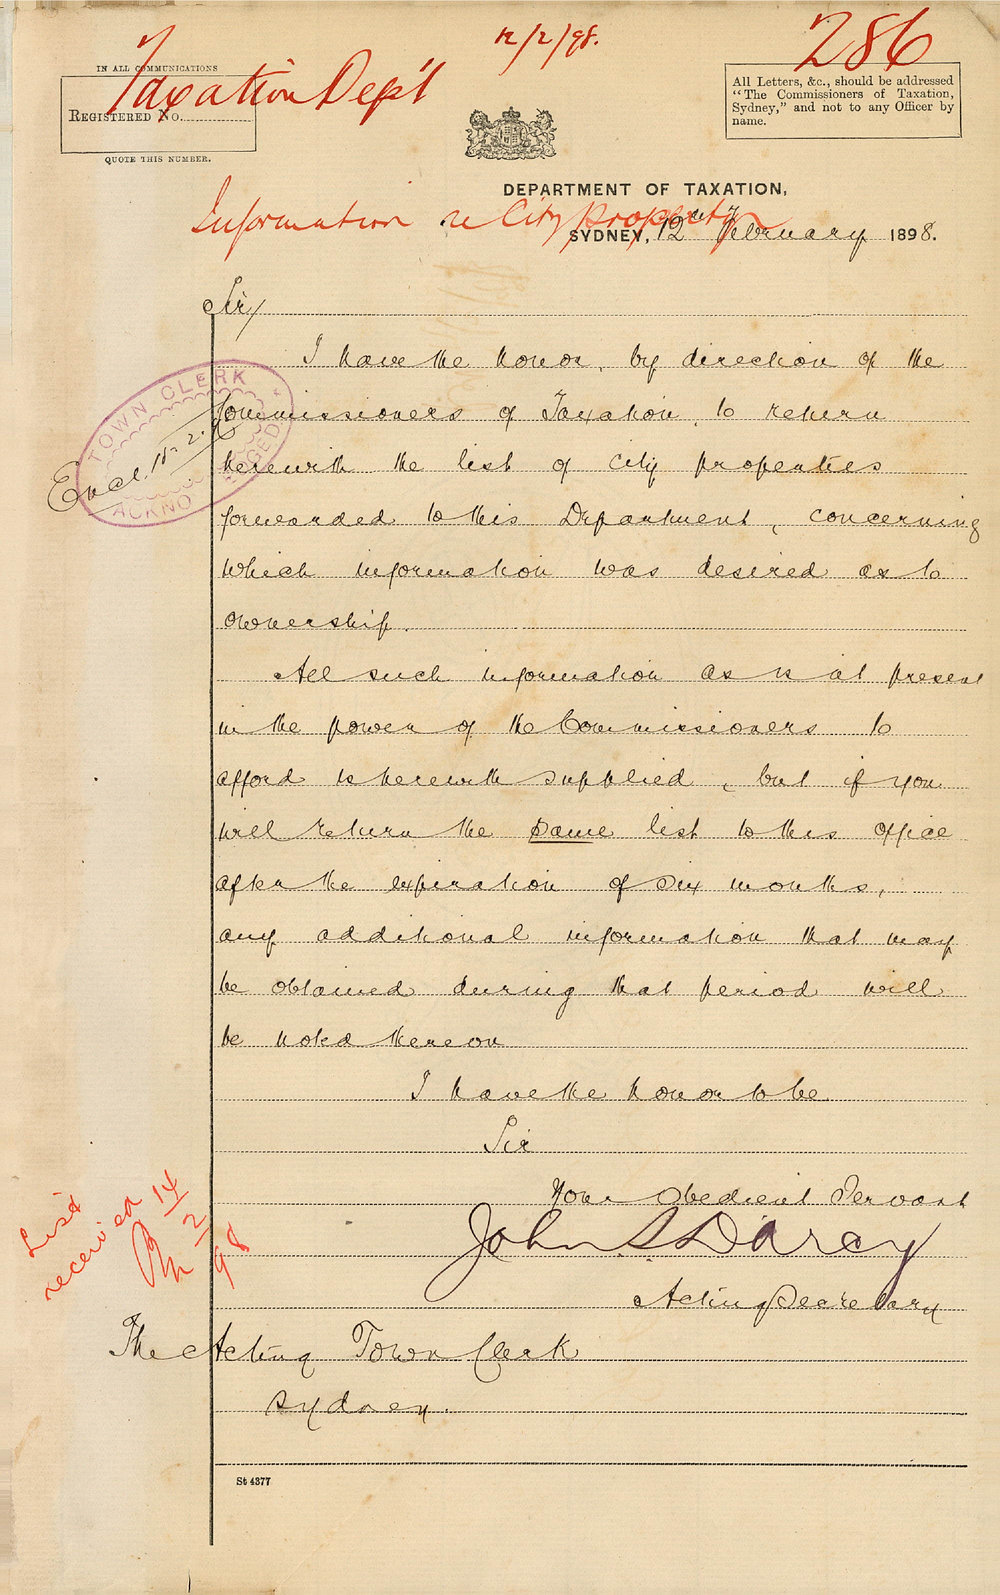 12/2/98.
286
Taxation Dep't
IN ALL COMMUNICATIONS
REGISTERED NO.
QUOTE THIS NUMBER.
All Letters, &c., should be addressed
"The Commissioners of Taxation,
Sydney," and not to any Officer by
name.
DEPARTMENT OF TAXATION,
Information re City Property
SYDNEY, 12th February 1898.
Sir/
I have the honor, by direction of the
Commissioners of Taxation, to return
herewith the list of city properties
forwarded to this Department, concerning
which information was desired as to
ownership.
TOWN CLERK
ACKNOWLEDGED
Encl. 15.2.98
All such information as is at present
in the power of the Commissioners to
afford is herewith supplied, but if you
will return the same list to this office
after the expiration of six months,
any additional information that may
be obtained during that period will
be noted thereon
I have the honor to be
Sir
Your Obedient Servant
John S D'Arcy
Acting Secretary
List
received 14
2
98
The Acting Town Clerk
Sydney.
St 4377